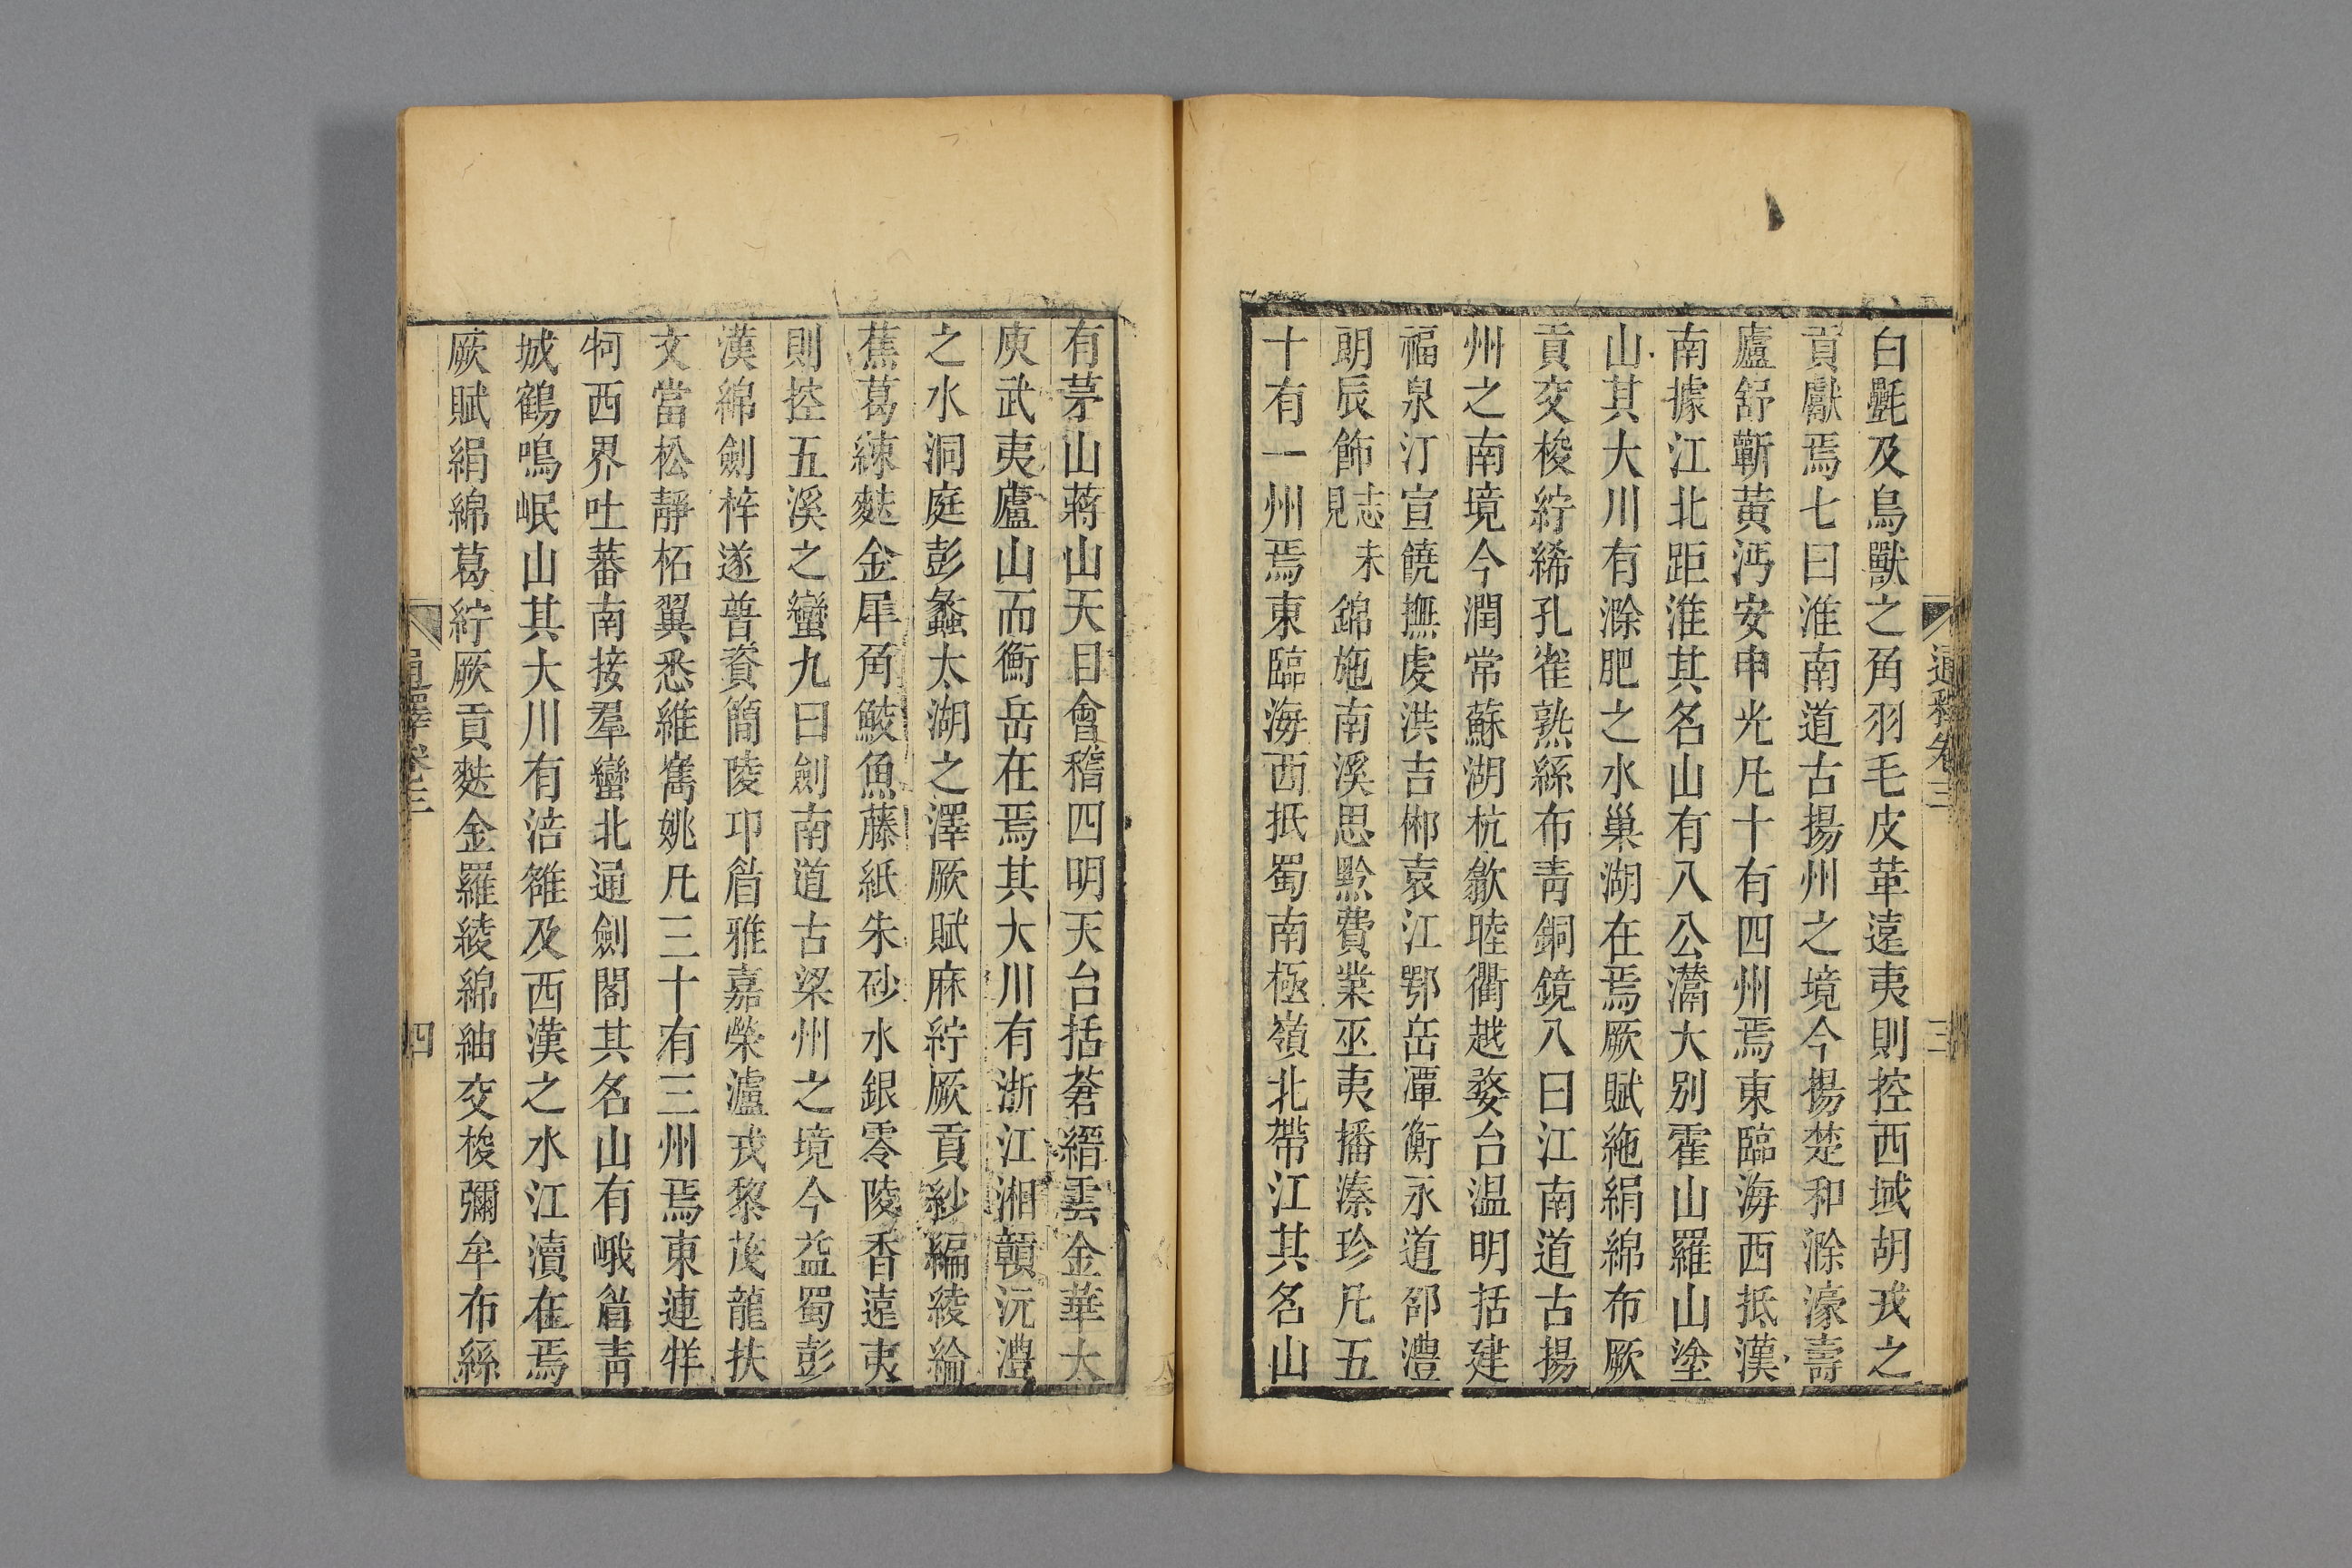 通釋卷三
三
白㲲及鳥獸之角羽毛皮革遠夷則控西域胡戎之
貢獻焉七曰淮南道古揚州之境今揚楚和滁濠壽
廬舒蘄黃沔安申光凡十有四州焉東臨海西抵漢
南據江北距淮其名山有八公灊大别霍山羅山塗
山其大川有滁肥之水巢湖在焉厥賦絁絹綿布厥
貢交梭紵絺孔雀熟絲布青銅鏡八曰江南道古揚
州之南境今潤常蘇湖杭歙睦衢越婺台温明括建
福泉汀宣饒撫虔洪吉郴袁江鄂岳潭衡永道邵澧
朗辰飾志未見錦施南溪思黔費業巫夷播溱珍凡五
十有一州焉東臨海西抵蜀南極嶺北帶江其名山
有茅山蔣山天目會稽四明天台括蒼縉雲金華大
庾武夷廬山而衡岳在焉其大川有浙江湘贑沅澧
之水洞庭彭蠡太湖之澤厥賦麻紵厥貢紗編綾綸
蕉葛練麩金犀角鮫魚藤紙朱砂水銀零陵香遠夷
則控五溪之蠻九曰劍南道古梁州之境今益蜀彭
漢綿劍梓遂普資簡陵卭眉雅嘉榮瀘戎黎茂龍扶
文當松靜柘翼悉維嶲姚凡三十有三州焉東連牂
牱西界吐蕃南接羣蠻北通劍閣其名山有峨眉青
城鶴鳴岷山其大川有涪雒及西漢之水江瀆在焉
厥賦絹綿葛紵厥貢麩金羅綾綿紬交梭彌牟布絲
通釋卷三
四